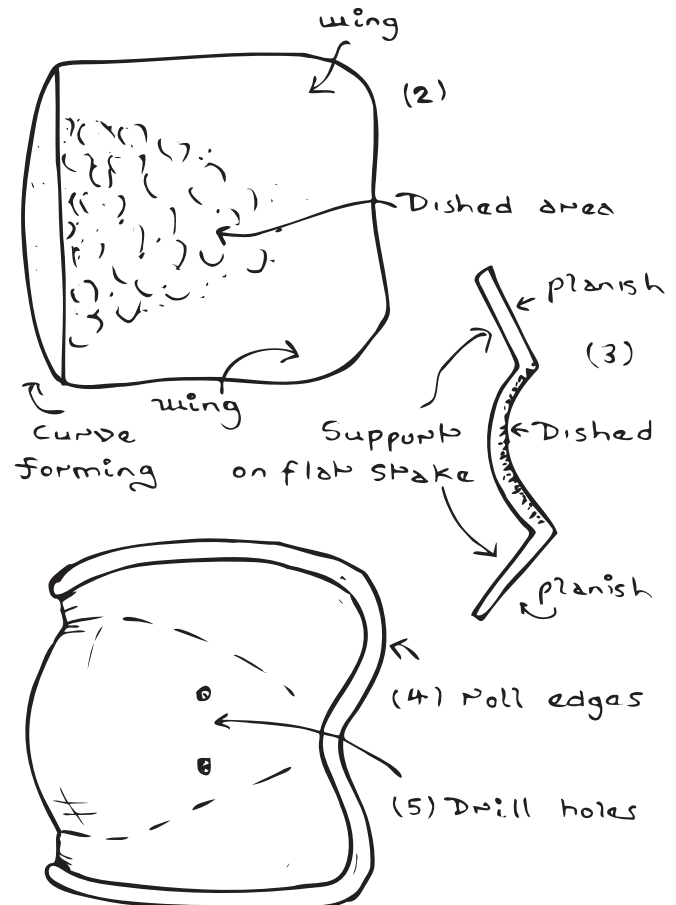 wing
(2)
Dished area
planish
(3)
wing
curve
forming
Support
on flat stake
Dished
planish
(4) roll edges
(5) Drill holes